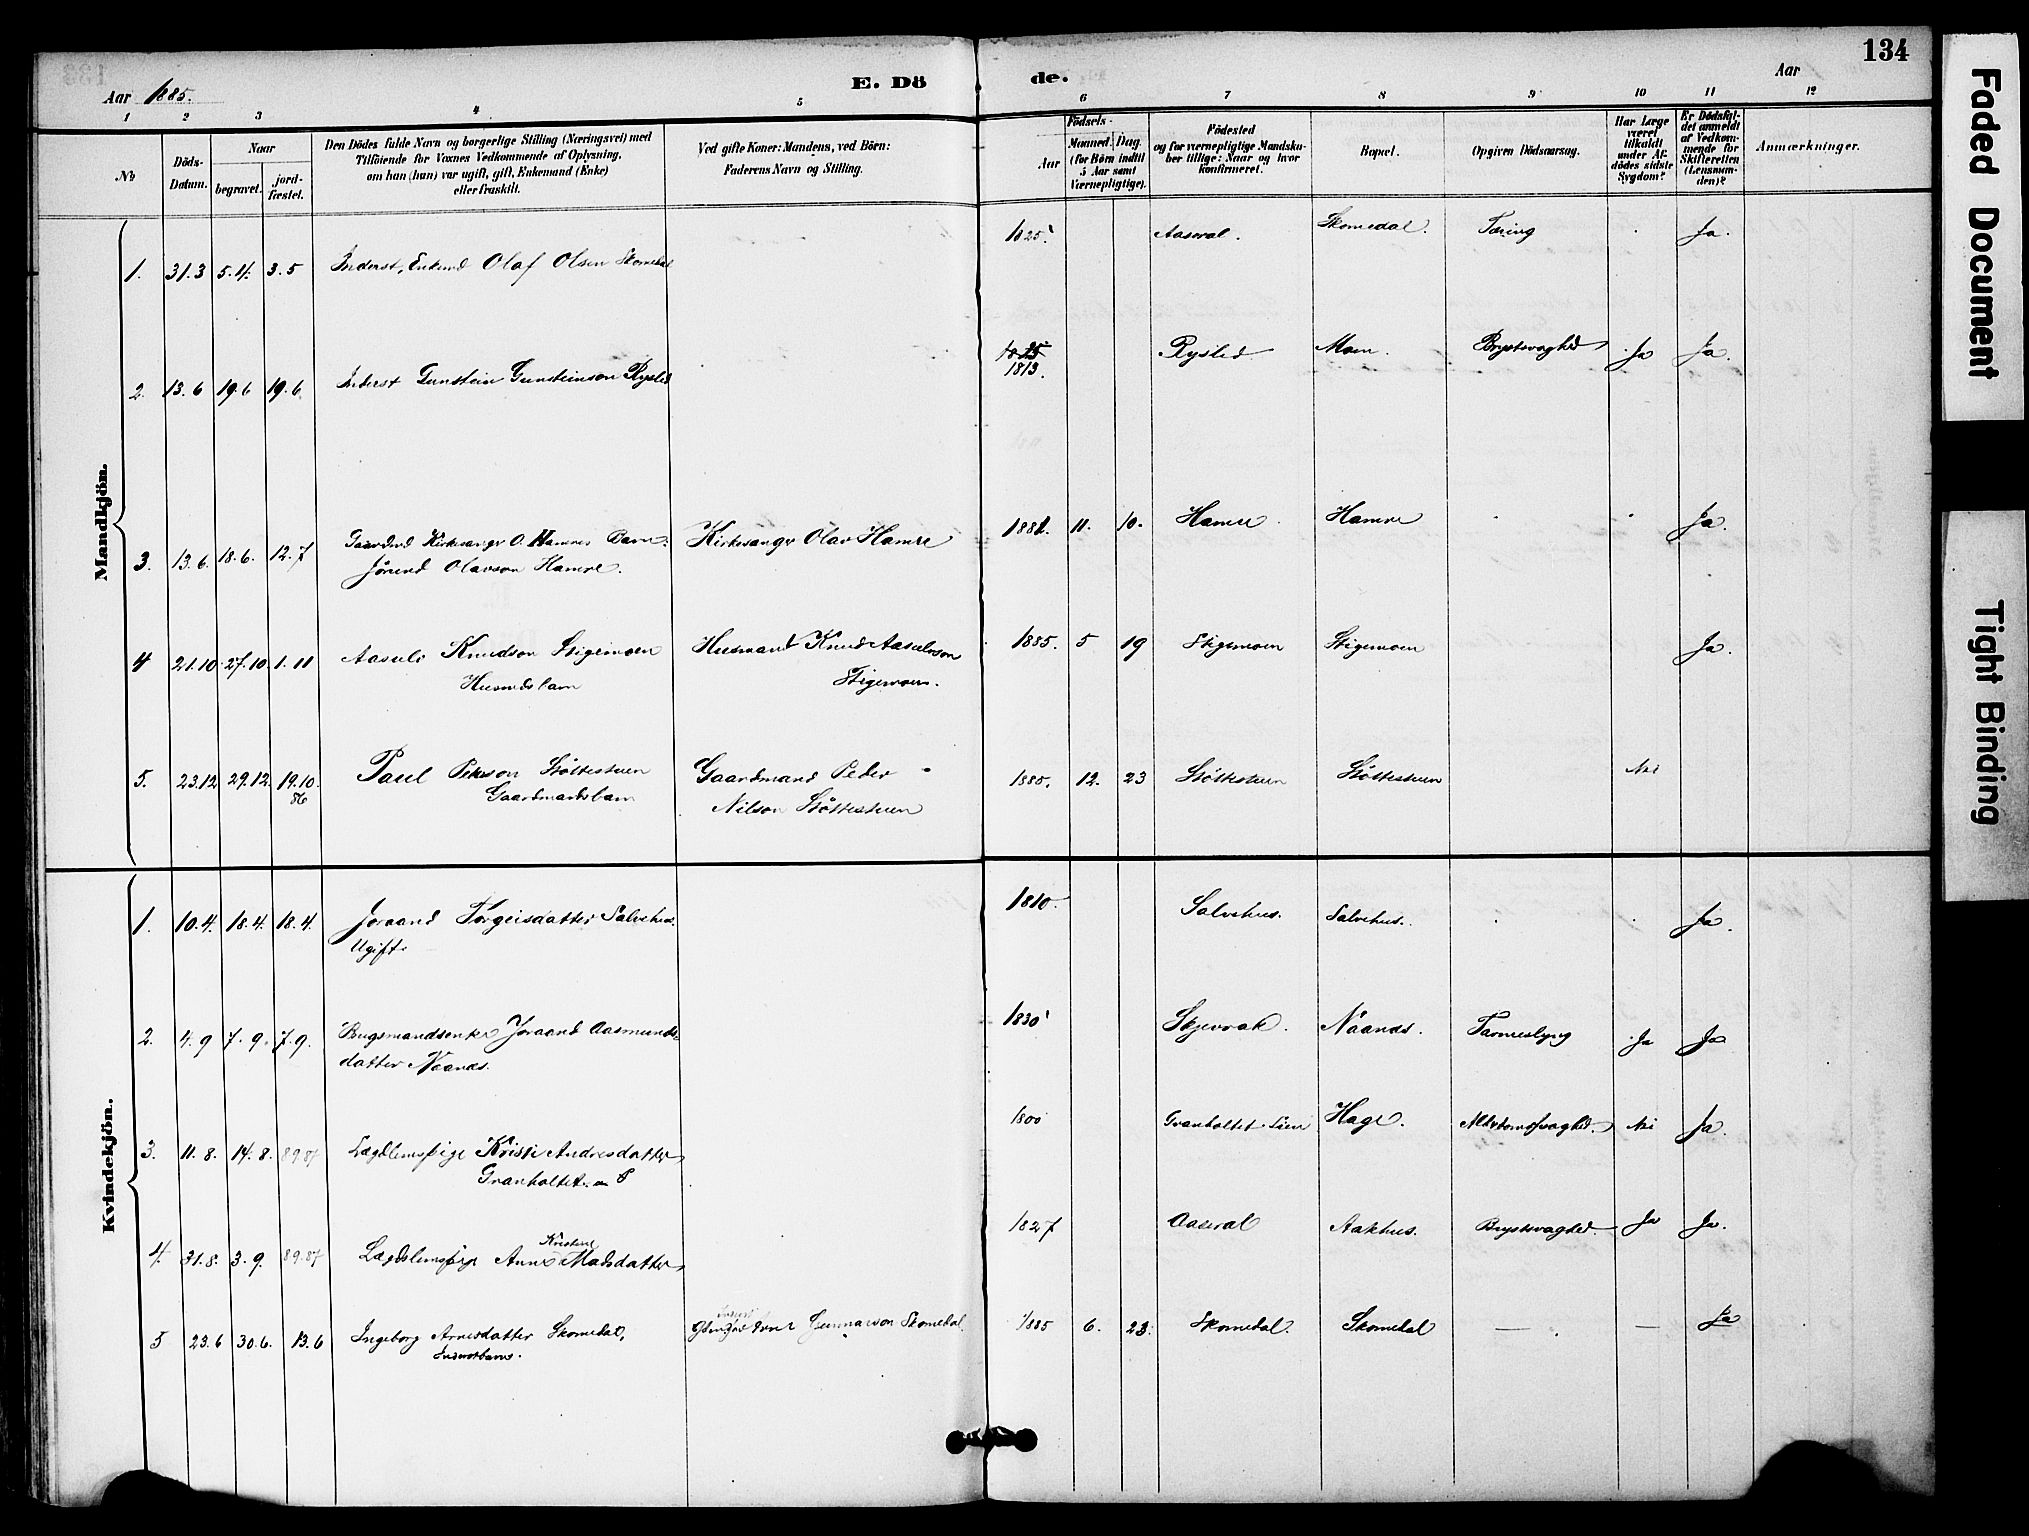 134
Aar 1885.
E. Døde.
Aar
1 2 3 4 5 6 7 8 9 10 11 12
No
Döds-Datum.
Naar
begravet.
jordfæstet.
Den Dödes fulde Navn og borgerlige Stilling (Næringsvei) med
Tilföiende for Voxnes Vedkommende af Oplysning,
om han (hun) var ugift, gift, Enkemand (Enke)
eller fraskilt.
Ved gifte Koner: Mandens, ved Börn:
Faderens Navn og Stilling.
Födsels-
Aar
Maaned. Dag.
(for Börn indtil
5 Aar samt
Værnepligtige).
Födested
og for værnepligtige Mandska-
ber tillige: Naar og hvor
konfirmeret.
Bopæl.
Opgiven Dödsaarsag.
Har Læge
været
tilkaldt
under Af-
dödes sidste
Sygdom?
Er Dödsfal-
det anmeldt
af Vedkom-
mende for
Skifteretten
(Lensman-
den)?
Anmærkninger.
Mandkjön.
1. 31.3 5.4. 3.5 Inderst, Enkemd Olaf Olsen Skomedal 1825. Aaseral. Skomedal. Tæring Ja.
2. 13.6 19.6 19.6 Inderst Gunstein Gunsteinson Rysted 1825 1813. Rysted Moen. Brystsvaghed Ja Ja.
3. 13.6. 18.6. 12.7 Gaardmd Kirkesangr O. Hamres Barn: Kirkesangr Olav Hamre 1881. 11. 10. Hamre Hamre Ja.
Jörend Olavson Hamre.
4 21.10 27.10 1.11 Aasulv Knudson Stigemoen Husmand Knud Aasulvson 1885. 5 19 Stigemoen Stigemoen Ja.
Husmdsbarn Stigemoen.
5. 23.12 29.12. 19.10. 86 Paul Pederson Stöttestuen Gaardmand Peder 1885. 12. 23 Stöttestuen Stöttestuen Nei
Gaardmandsbarn Nilson Stöttestuen
Kvindekjön.
1. 10.4. 18.4. 18.4 Joraand Torgeisdatter Salvehus. 1810. Salvehus. Salvehus. Ja.
Ugift.
2. 4.9 7.9. 7.9. Bugsmandsenke Joraand Aasmunds- 1830 Skjevrak. Naanes. Tarmeslyng Ja Ja
datter Naanes.
3. 11.8. 14.8. 89.87 Lægdslemspige Kristi Andresdatter 1800 Granholtet Lien Hage. Alderdomsfvaghed. Nei Ja.
Granholtet
4. 31.8. 3.9. 89.87 Lægdslemspige Anne Kristine Madsdatter 1827 Aaseral Aakhus. Brystsvaghed. Ja Ja.
5 23.6 30.6. 13.6 Ingeborg Arnesdatter Skomedal, Arne Gunnarson Skomedal. 1885 6. 23. Skomedal. Skomedal — — Ja
Inderstbarn.
Faded Document
Tight Binding